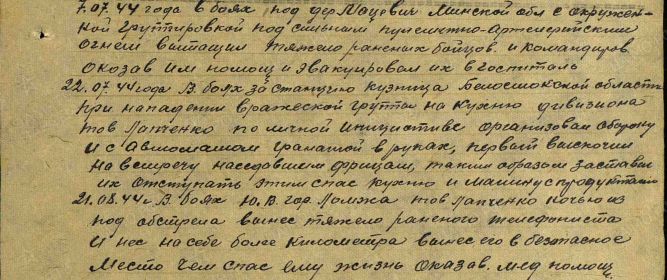 7.07.44 года в боях под дер Мацевич Минской обл с окружен-
ной группировкой под сильным пулеметно-Артелерийским
огнем вытащил тяжело раненых бойцов. и командиров.
оказав им помощ и эвакуировал их в госпиталь
22.07.44 года В боях за станцию кузница Белостокской области
при нападении вражеской группы на кухню дивизиона
тов Лапченко по личной инициативе организовал оборону
и с автоматом гранатой в руках, первый выскочил
на встречу наседавшим фрицам, таким образом заставил
их отступать этим спас кухню и машину с продуктами
21.08.44 г. В боях Ю.В. гор Ломжа тов Лапченко ночью из
под обстрела вынес тяжело раненого телефониста
и нес на себе более километра вынес его в безопасное
место чем спас ему жизнь оказав. мед помощ